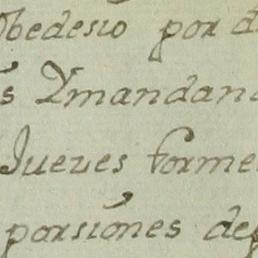 Obedesio por d
s Ymandand
Jueves forme
porsiones de